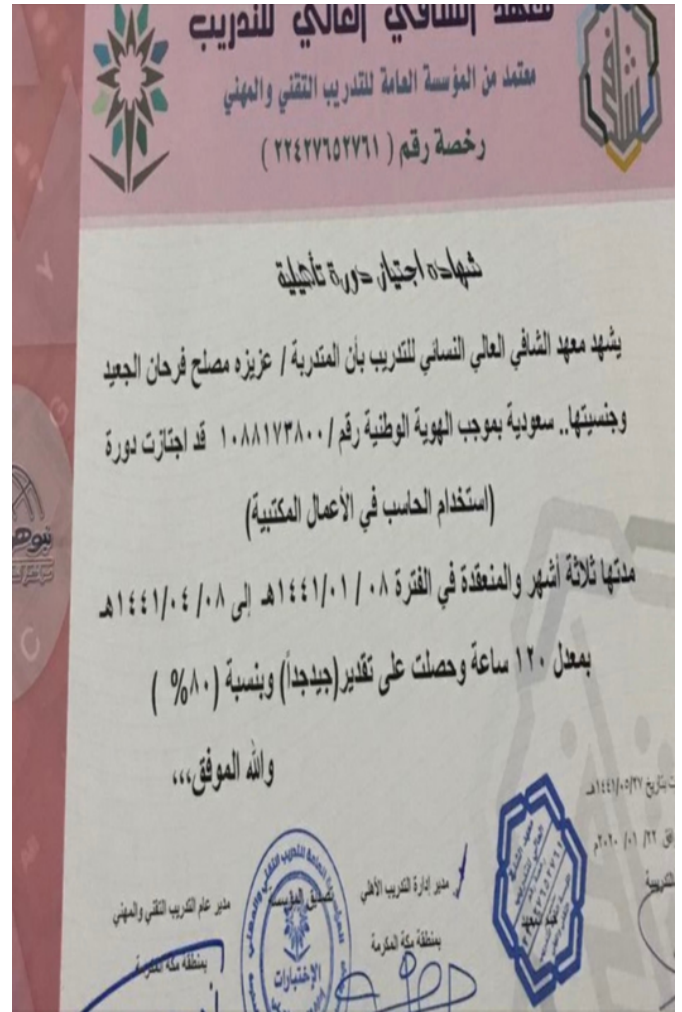 معهد الشافي العالي للتدريب
معتمد من المؤسسة العامة للتدريب التقني والمهني
رخصة رقم ( ٢٢٤٢٧٦٥٢٧٦١ )
شهاده اجتياز دورة تأهيلية
يشهد معهد الشافي العالي النسائي للتدريب بأن المتدربة / عزيزه مصلح فرحان الجعيد
وجنسيتها.. سعودية بموجب الهوية الوطنية رقم / ١٠٨٨١٧٣٨٠٠ قد اجتازت دورة
(استخدام الحاسب في الأعمال المكتبية)
مدتها ثلاثة أشهر والمنعقدة في الفترة ٠٨ / ١٤٤١/٠١هـ إلى ٠٨ /١٤٤١/٠٤هـ
بمعدل ١٢٠ ساعة وحصلت على تقدير(جيدجداً) وبنسبة (٨٠% )
والله الموفق،،،
بتاريخ ١٤٤١/٠٥/٢٧هـ
٢٢/ ٠١/ ٢٠٢٠م
التدريبية
مدير إدارة التدريب الأهلي
بمنطقة مكة المكرمة
مدير عام التدريب التقني والمهني
بمنطقة مكة المكرمة
تصديق المؤسسة
الإختبارات